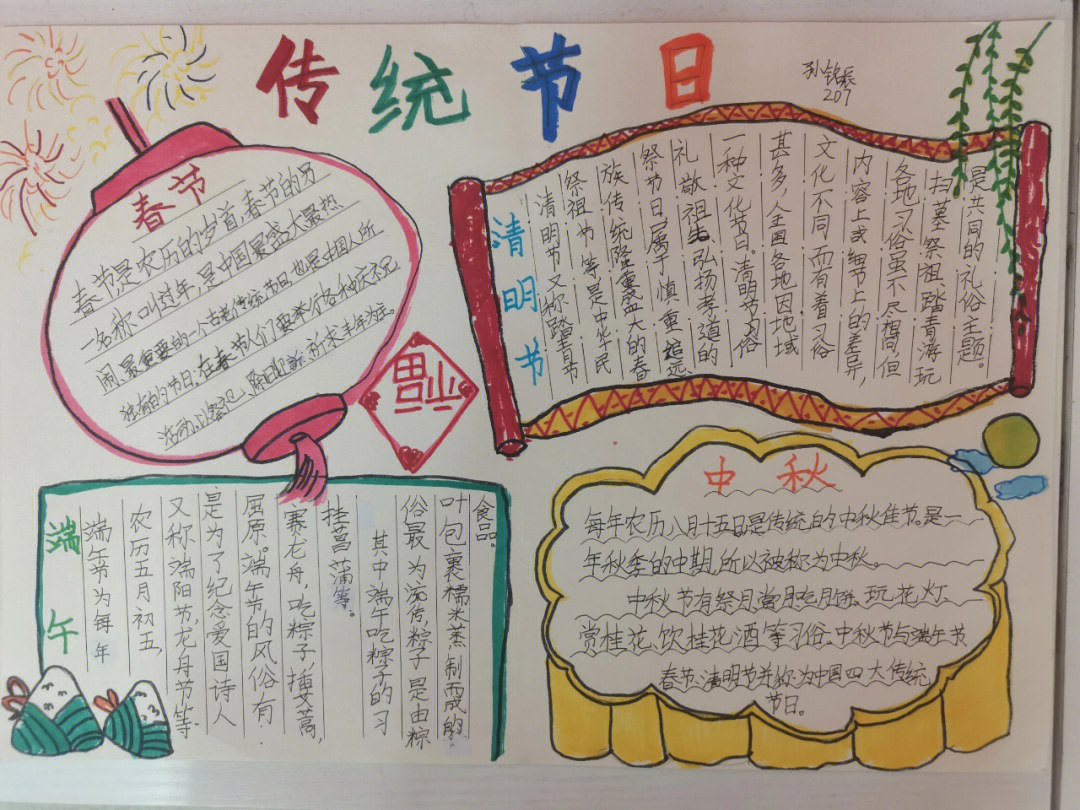 传统节日
孙铭
207
春节
春节是农历的岁首,春节的另
一名称叫过年,是中国最盛大最热
闹、最重要的一个古老传统节日,也是中国人所
独有的节日.在春节人们要举行各种庆祝
活动,以祭祀、除旧迎新,祈求丰年为主。
清明节
清明节又称踏青节
祭祖节等是中华民
族传统隆重盛大的春
祭节日属于慎重追远、
礼敬祖先、弘扬孝道的
一种文化节日。清明节习俗
甚多,全国各地因地域
文化不同而有着习俗
内容上或细节上的差异,
各地习俗虽不尽相同,但
扫墓祭祖、踏青游玩
是共同的礼俗主题。
福
端午
端午节为每年
农历五月初五,
又称端阳节,龙舟节等.
是为了纪念爱国诗人
屈原。端午节的风俗有
赛龙舟,吃粽子,插艾蒿,
挂菖蒲等。
其中端午吃粽子的习
俗最为流传,粽子是由粽
叶包裹糯米蒸制而成的
食品。
中秋
每年农历八月十五日是传统的中秋佳节.是一
年秋季的中期,所以被称为中秋。
中秋节有祭月、赏月、吃月饼、玩花灯、
赏桂花、饮桂花酒等习俗.中秋节与端午节
春节、清明节并称为中国四大传统
节日。